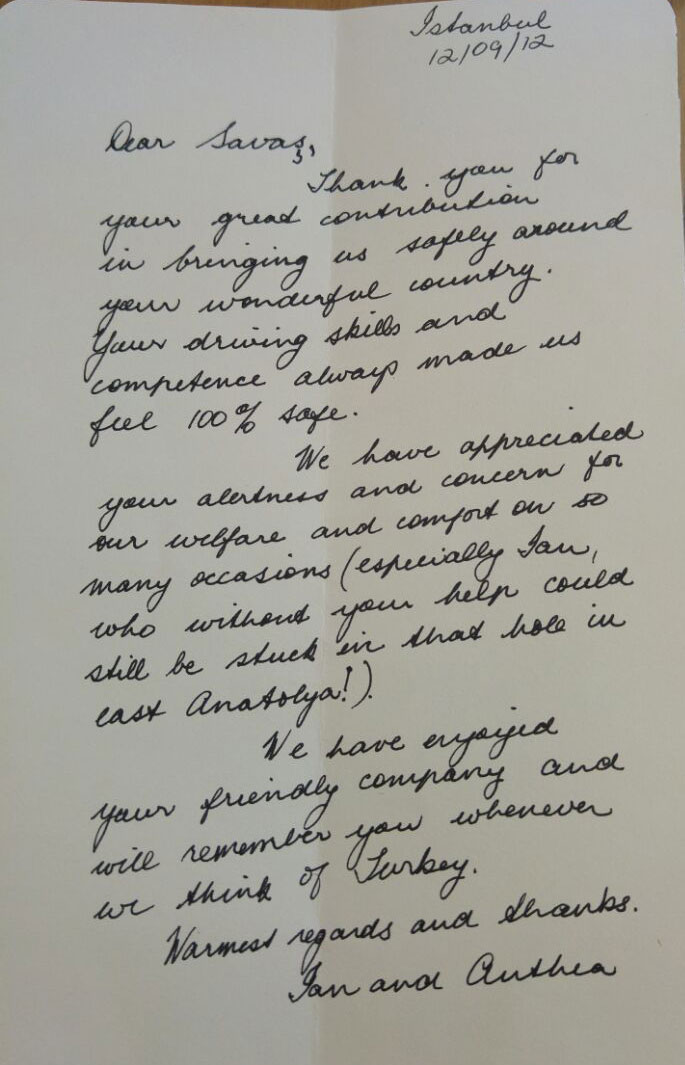 Istanbul
12/09/12
Dear Savaş,
Thank you for
your great contribution
in bringing us safely around
your wonderful country.
Your driving skills and
competence always made us
feel 100% safe.
We have appreciated
your alertness and concern for
our welfare and comfort on so
many occasions (especially Ian,
who without your help could
still be stuck in that hole in
east Anatolya!).
We have enjoyed
your friendly company and
will remember you whenever
we think of Turkey.
Warmest regards and thanks.
Ian and Anthea